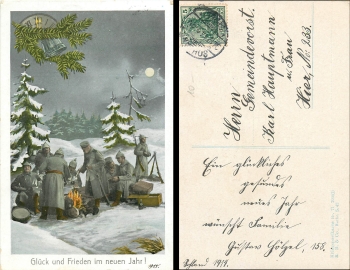 Glück und Frieden im neuen Jahr!
Herrn
Gemeindevorst.
Karl Hauptmann
u. Frau
Hier, Nr. 233.
Ein glückliches
gesundes
neues Jahr
wünscht Familie
Gustav Götzel, 158.
1914.